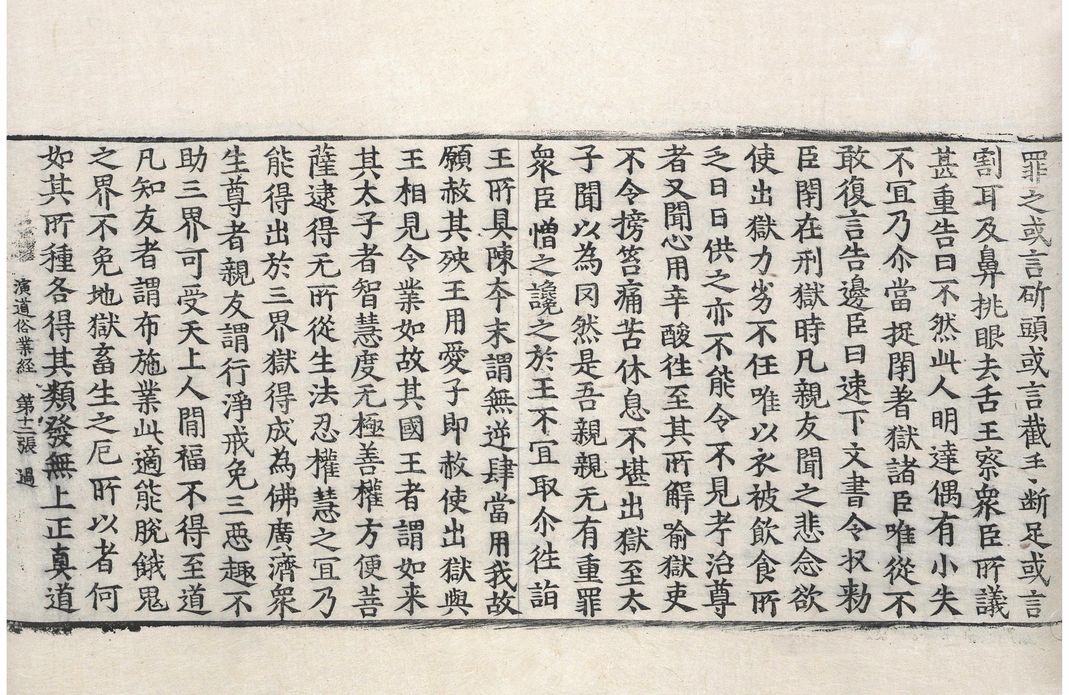 罪之或言斫頭或言截手斷足或言
割耳及鼻挑眼去舌王察衆臣所議
甚重告曰不然此人明達偶有小失
不宜乃尒當捉閉著獄諸臣唯從不
敢復言告邊臣曰速下文書令收勑
臣閉在刑獄時凡親友聞之悲念欲
使出獄力劣不任唯以衣被飲食所
乏日日供之亦不能令不見考治尊
者又聞心用辛酸徃至其所解喻獄吏
不令搒笞痛苦休息不堪出獄至太
子聞以為罔然是吾親親无有重罪
衆臣憎之讒之於王不宜取尒徃詣
王所具陳夲末謂無逆肆當用我故
願赦其殃王用愛子即赦使出獄與
王相見令業如故其國王者謂如来
其太子者智慧度无極善權方便菩
薩逮得无所從生法忍權慧之宜乃
能得出於三界獄得成為佛廣濟衆
生尊者親友謂行淨戒免三惡趣不
助三界可受天上人間福不得至道
凡知友者謂布施業此適能脫餓鬼
之界不免地獄畜生之厄所以者何
如其所種各得其類發無上正真道
演道俗業経　第十二張　過